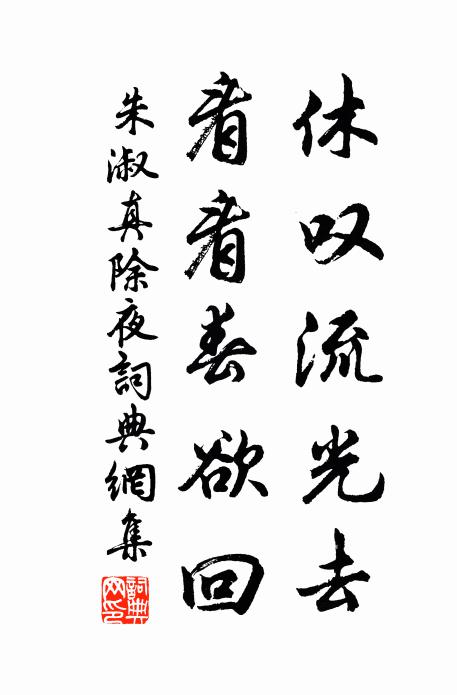 休叹流光去
看看春欲回
朱淑真除夜詞典網集
詞典网印